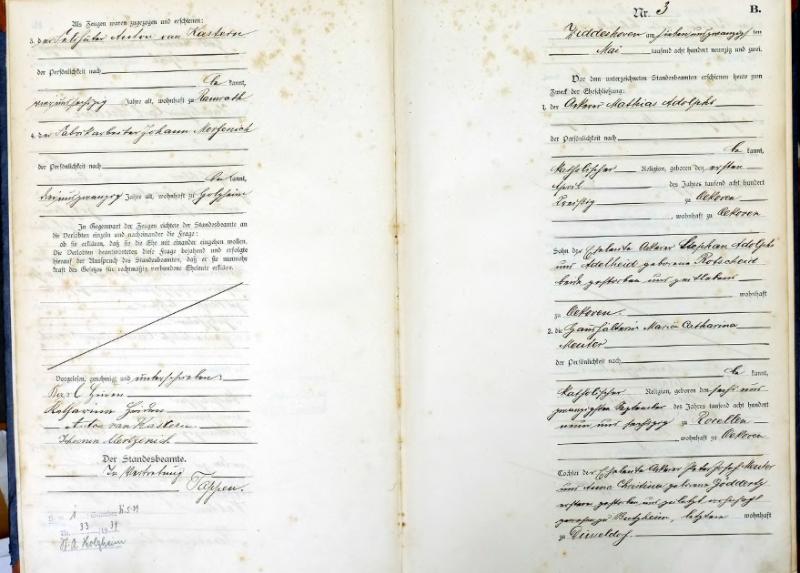 Als Zeugen waren zugezogen und erschienen:
3. der Anton van Kastern
der Persönlichkeit nach
be kannt,
Jahre alt, wohnhaft zu Ramrath
4. der Fabrikarbeiter Johann
der Persönlichkeit nach
be kannt,
dreiundzwanzig Jahre alt, wohnhaft zu Holzheim
In Gegenwart der Zeugen richtete der Standesbeamte an
die Verlobten einzeln und nacheinander die Frage:
ob sie erklären, daß sie die Ehe mit einander eingehen wollen.
Die Verlobten beantworteten diese Frage bejahend und erfolgte
hierauf der Ausspruch des Standesbeamten, daß er sie nunmehr
kraft des Gesetzes für rechtmäßig verbundene Eheleute erkläre.
Vorgelesen, genehmigt und unterschrieben:
Karl
Katharina
Anton van Kastern
Der Standesbeamte.
In Vertretung
Tappen.
33
Holzheim
Nr. 3
B.
am siebenundzwanzigsten
Mai tausend acht hundert neunzig und zwei.
Vor dem unterzeichneten Standesbeamten erschienen heute zum
Zweck der Eheschließung:
1. der Ackerer Mathias Adolphs
der Persönlichkeit nach
be kannt,
katholischer Religion, geboren den ersten
April des Jahres tausend acht hundert
dreißig zu Oekoven
, wohnhaft zu Oekoven
Sohn der Eheleute Ackerer Stephan Adolphs
und Adelheid geborene Rotscheid
beide gestorben und
wohnhaft
zu Oekoven.
2. die Haushälterin Maria Catharina
Meuter
der Persönlichkeit nach
be kannt,
katholischer Religion, geboren den sechs und
zwanzigsten September des Jahres tausend acht hundert
neun und sechzig zu Rosellen
, wohnhaft zu Oekoven
Tochter der Eheleute Ackerer Peter Josef Meuter
und Anna Christina geborene
gestorben und zuletzt wohnhaft
gewesen zu letztere wohnhaft
zu Düsseldorf.